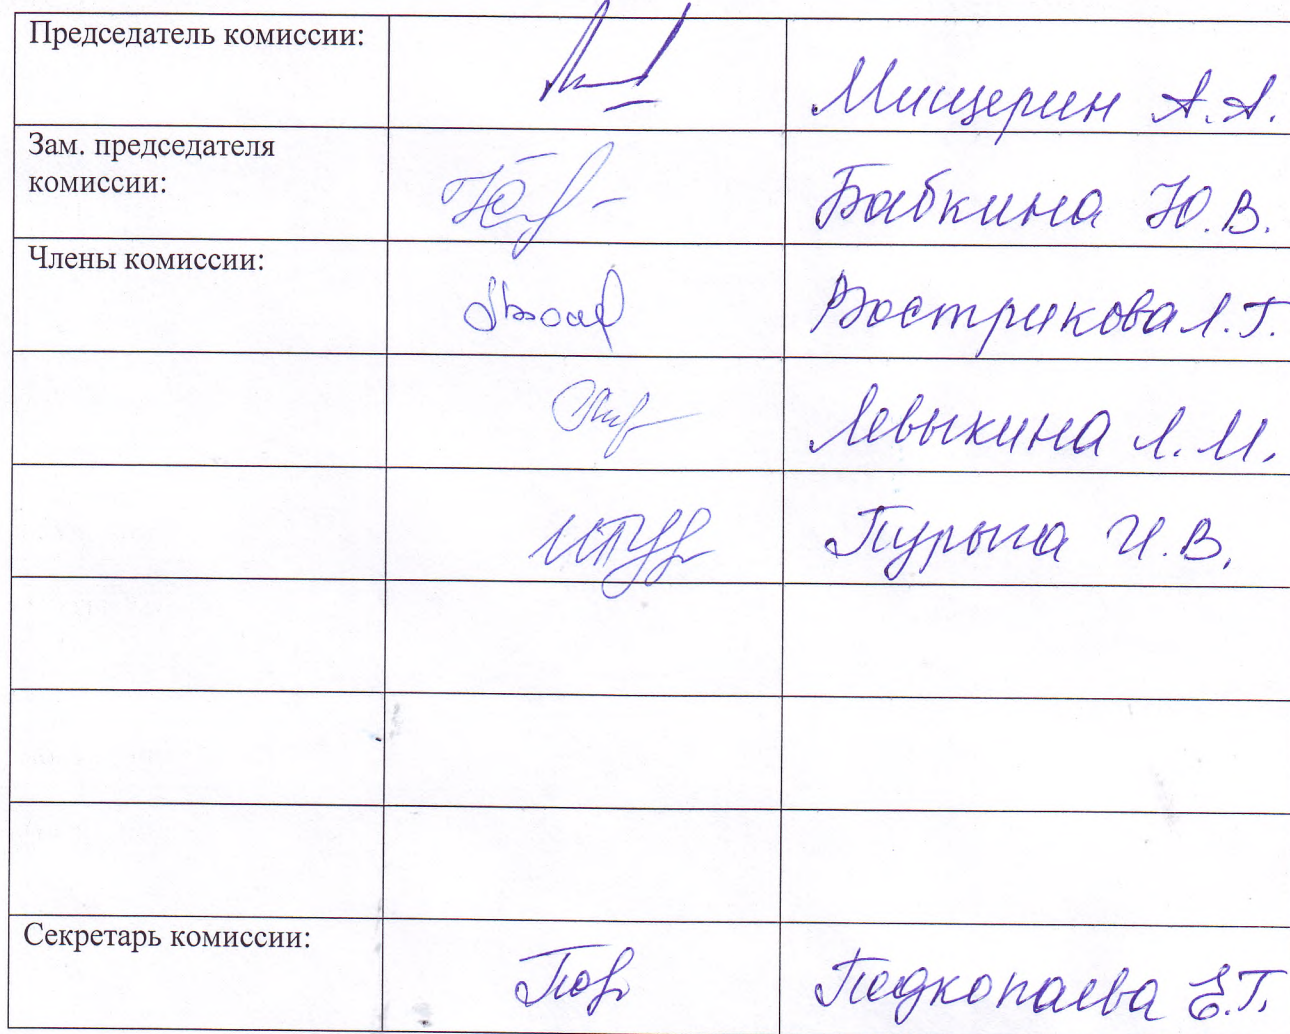 Председатель комиссии:
Мищерин А.А.
Зам. председателя
комиссии:
Бабкина Ю.В.
Члены комиссии:
Вострикова Л.Г.
Левыкина Л.М.
Пурыга И.В.
Секретарь комиссии:
Подкопаева Е.Г.